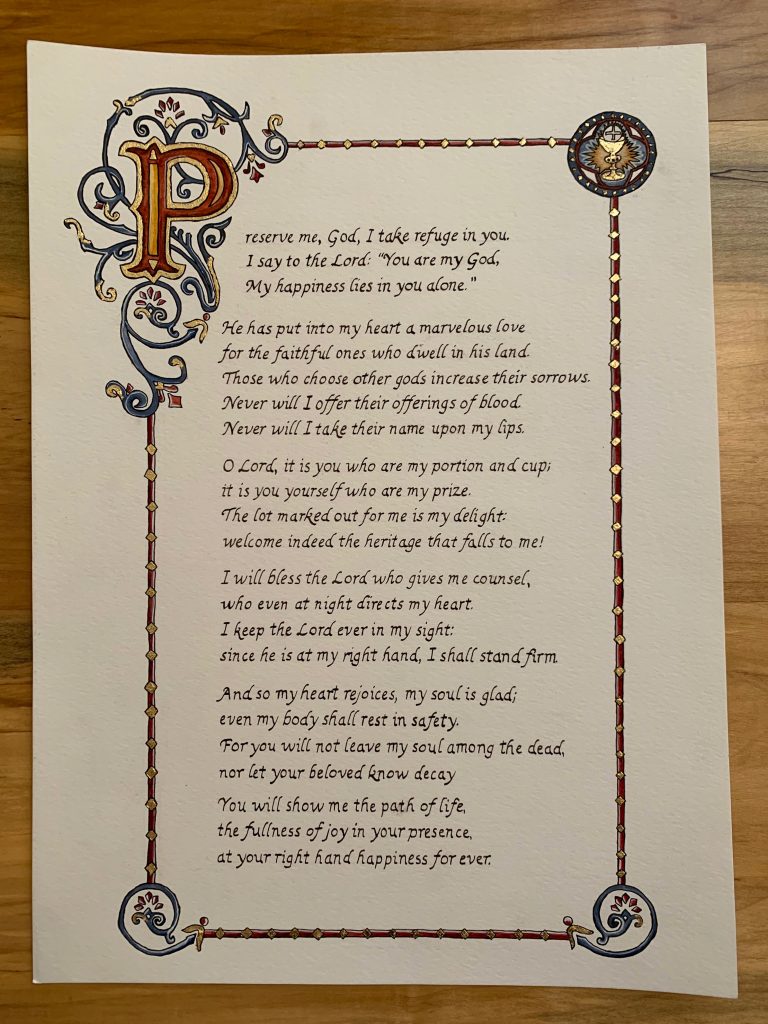 Preserve me, God, I take refuge in you.
I say to the Lord: "You are my God,
My happiness lies in you alone."
He has put into my heart a marvelous love
for the faithful ones who dwell in his land.
Those who choose other gods increase their sorrows.
Never will I offer their offerings of blood.
Never will I take their name upon my lips.
O Lord, it is you who are my portion and cup;
it is you yourself who are my prize.
The lot marked out for me is my delight:
welcome indeed the heritage that falls to me!
I will bless the Lord who gives me counsel,
who even at night directs my heart.
I keep the Lord ever in my sight:
since he is at my right hand, I shall stand firm.
And so my heart rejoices, my soul is glad;
even my body shall rest in safety.
For you will not leave my soul among the dead,
nor let your beloved know decay
You will show me the path of life,
the fullness of joy in your presence,
at your right hand happiness for ever.